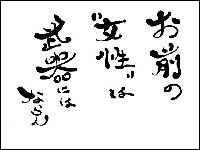 お前の
"女性"は
武器には
ならん